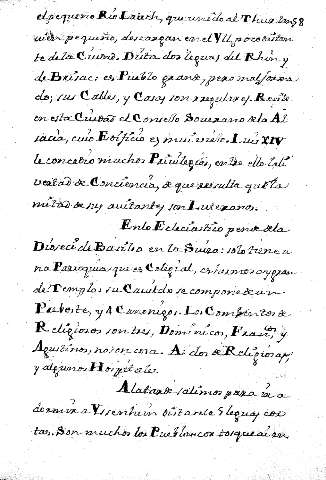 el pequeño Rio Laiech, que unido al Thur tan 58
bien pequeño, descargan en el Yll, no distan
te de la Ciudad. Dista dos leguas del Rhin y
de Brisac: es Pueblo grande, pero mal forma
do; sus Calles, y Casas son yrregulares. Reside
en esta Ciudad el Consejo Soverano de la Al
sacia, cuio Edificio es mui viejo. Luis XIV
le concedio muchos Privilegios, entre ellos la li
vertad de Conciencia, de que resulta que la
mitad de sus avitantes son Luteranos.
En lo Eclesiastico pende de la
Diocesi de Basilea en la Suiza: solo tiene u
na Parroquia que es Colegial, en hermoso y gran
de Templo: su Cavildo se compone de un
Preboste, y Canonigos. Los Combentos de
Religiosos son tres, Dominicos, Francos y
Agustinos, no Ai dos de Religiosas,
y algunos Hospitales.
A la tarde salimos para ir a
dormir a distante 5 leguas cor
tas. Son muchos los Pueblos cortos que ai en